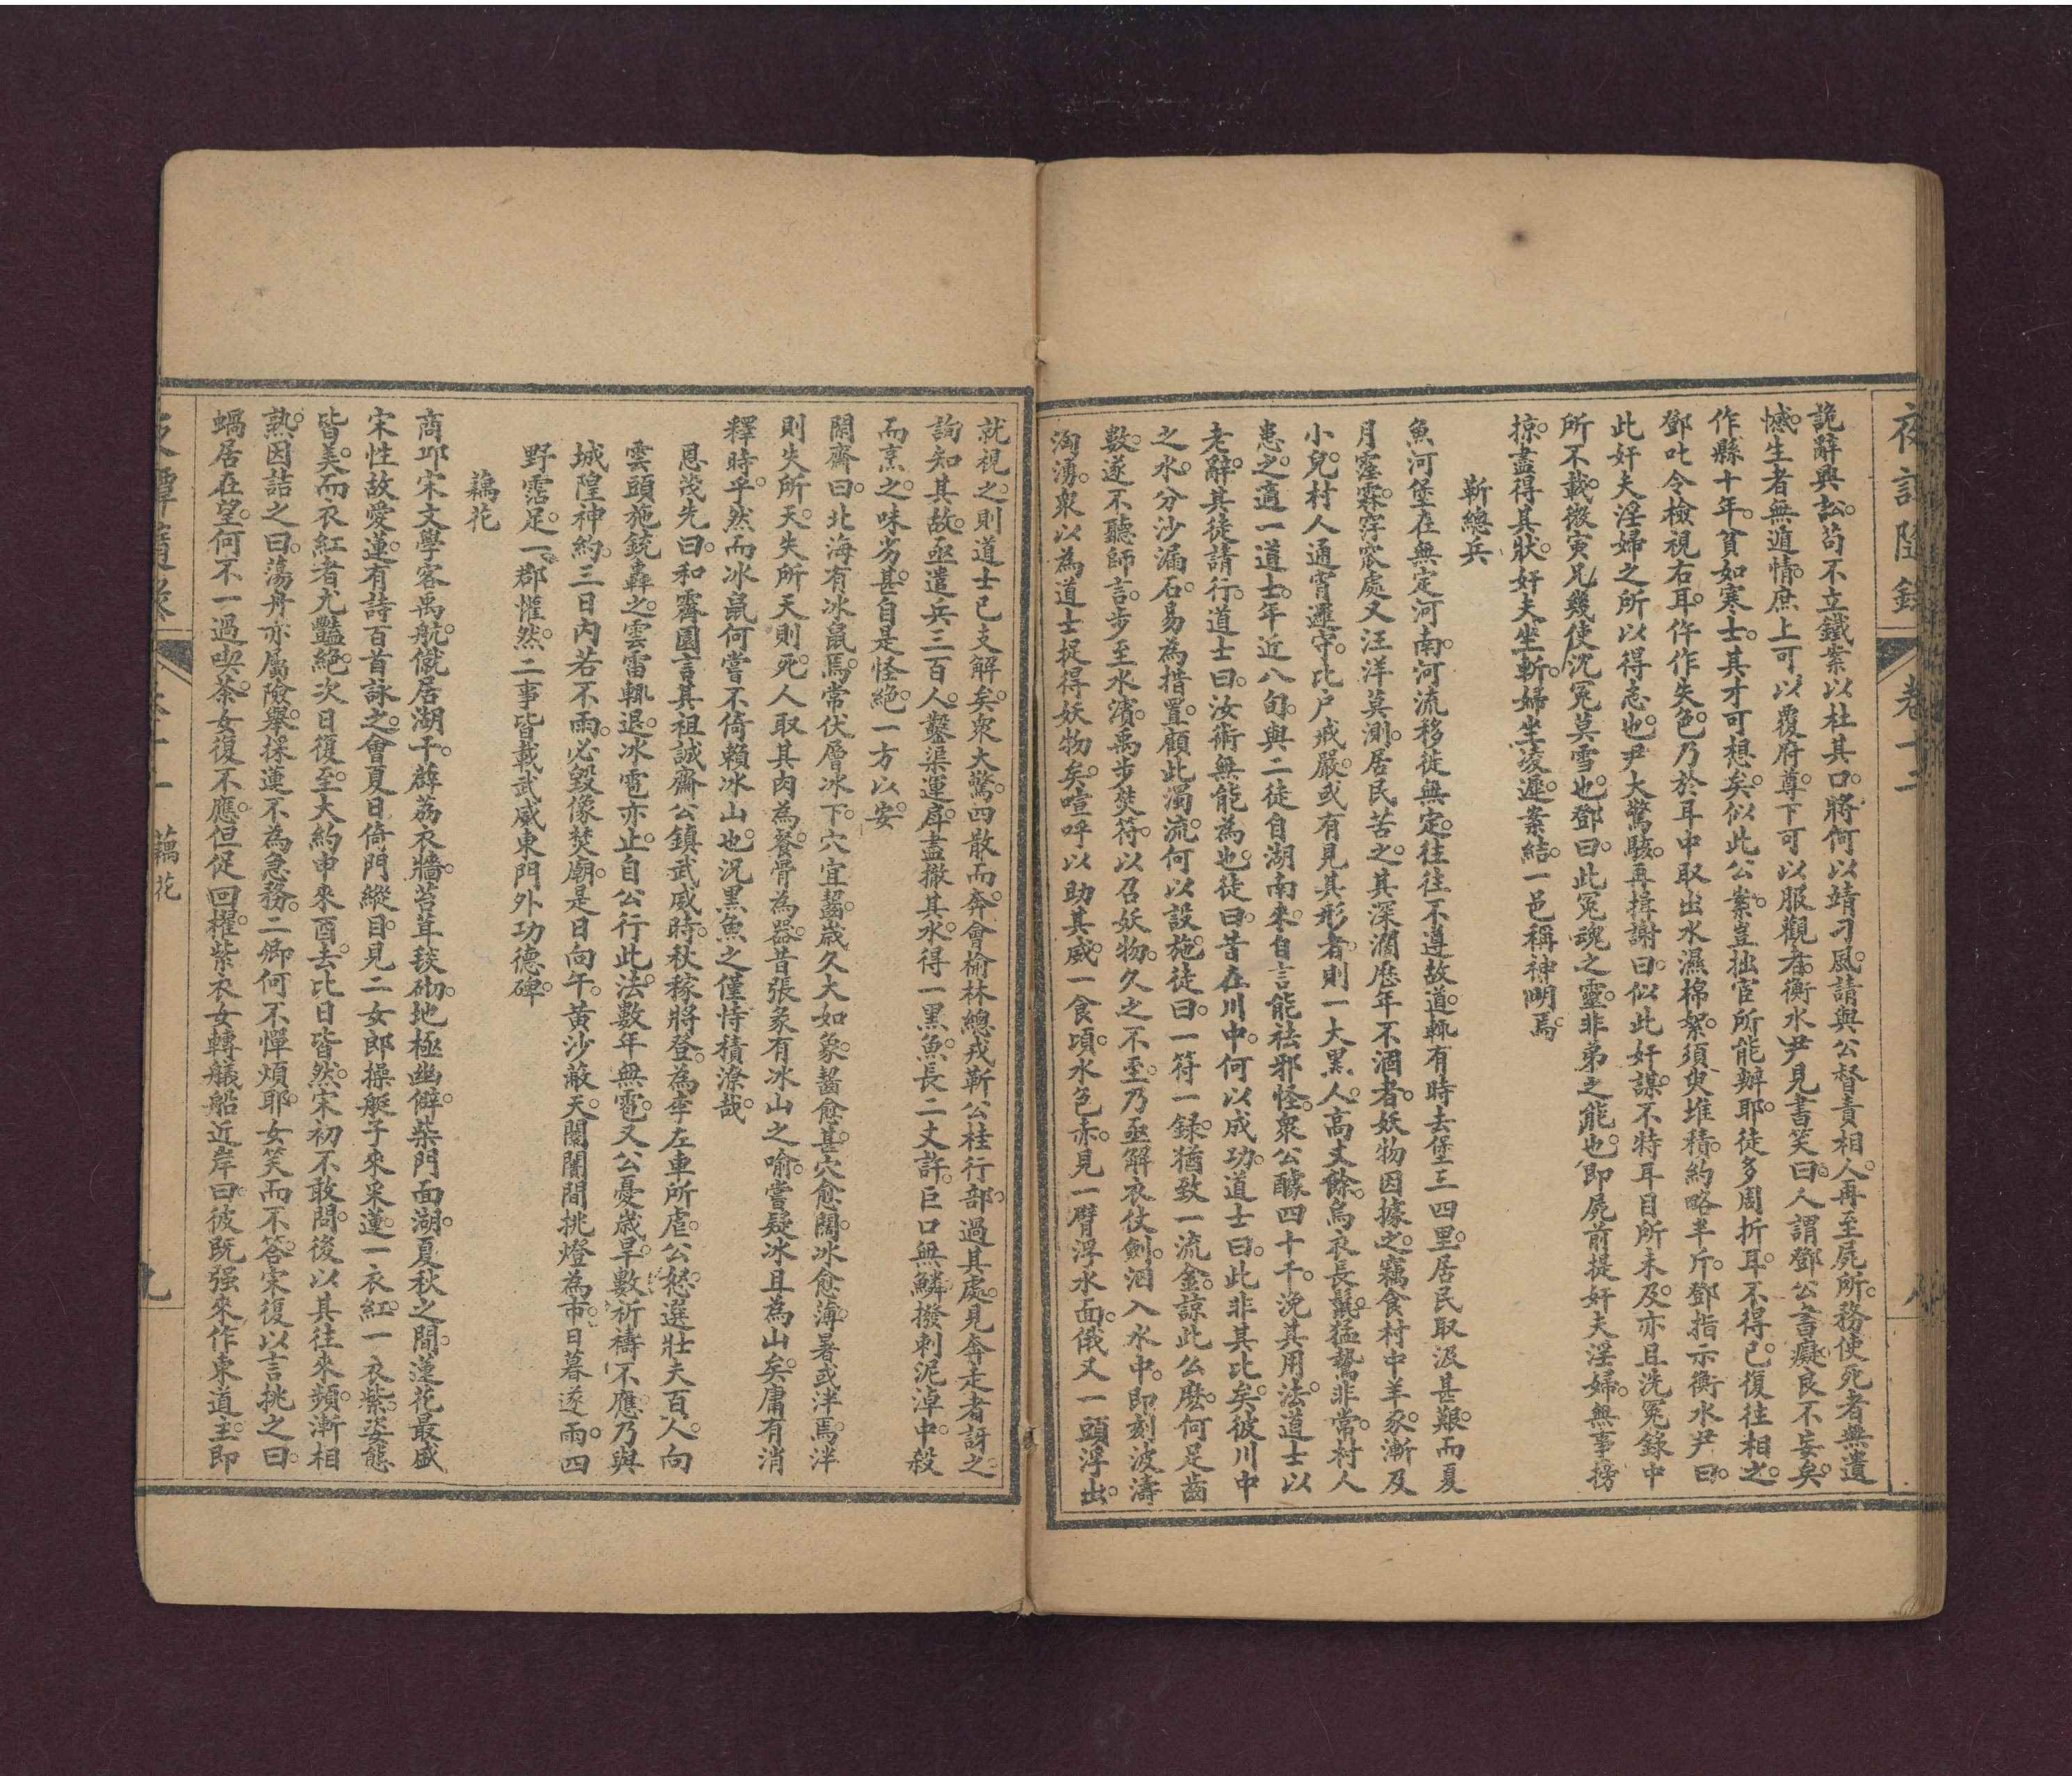 夜譚隨錄 卷十二
詭辭興訟。苟不立鐵案以杜其口。將何以靖刁風。請與公督責相人。再至屍所。務使死者無遺
憾。生者無遁情。庶上可以覆府尊。下可以服觀者。衡水尹見書笑曰。人謂鄧公書癡。良不妄矣。
作縣十年。貧如寒士。其才可想矣。似此公案。豈拙宦所能辦耶。徒多周折耳。不得已。復往相之。
鄧叱令檢視右耳。仵作失色。乃於耳中取出水濕棉絮。須臾堆積。約略半斤。鄧指示衡水尹曰。
此奸夫淫婦之所以得志也。尹大驚駭。再揖謝曰。似此奸謀。不特耳目所未及。亦且洗冤錄中
所不載。微寅兄幾使沉冤莫雪也。鄧曰。此冤魂之靈。非弟之能也。即屍前提奸夫淫婦。無事搒
掠。盡得其狀。奸夫坐斬。婦坐凌遲。案結。一邑稱神明焉。
靳總兵
魚河堡在無定河南。河流移徙無定。往往不遵故道。輒有時去堡三四里。居民取汲甚艱。而夏
月霪霖。窪窊處又汪洋莫測。居民苦之。其深濶歷年不涸者。妖物因據之。竊食村中羊豕。漸及
小兒。村人通宵邏守。比户戒嚴。或有見其形者。則一大黑人。高丈餘。烏衣長鬣。猛鷙非常。村人
患之。適一道士。年近八旬。與二徒自湖南來。自言能袪邪怪。衆公醵四十千。浼其用法。道士以
老辭。其徒請行。道士曰。汝術無能為也。徒曰。昔在川中。何以成功。道士曰。此非其比矣。彼川中
之水。分沙漏石。易為措置。顧此濁流。何以設施。徒曰。一符一録。猶致一流金。諒此么麽。何足齒
數。遂不聽師言。步至水濱。禹步焚符。以召妖物。久之不至。乃亟解衣仗劍。泅入水中。即刻波濤
洶湧。衆以為道士捉得妖物矣。喧呼以助其威。一食頃。水色赤。見一臂浮水面。俄又一頭浮出。
就視之。則道士已支解矣。衆大驚。四散而奔。會榆林總戎靳公桂行部。過其處。見奔走者訝之。
詢知其故。亟遣兵三百人。鑿渠運戽。盡撤其水。得一黑魚。長二丈許。巨口無鱗。撥刺泥淖中。殺
而烹之。味劣甚。自是怪絶。一方以安。
閑齋曰。北海有冰鼠焉。常伏層冰下。穴宜齧。歲久大如象。齧愈甚。穴愈闊。冰愈薄。暑或泮焉。泮
則失所天。失所天則死。人取其肉為餐。骨為器。昔張彖有冰山之喻。嘗疑冰且為山矣。庸有消
釋時乎。然而冰鼠何嘗不倚賴冰山也。況黑魚之僅恃積潦哉。
恩茂先曰。和霽園言其祖誠齋公鎮武威時。秋稼將登。為牽左車所虐。公怒。選壯夫百人。向
雲頭施銃轟之。雲雷輒退。冰雹亦止。自公行此法。數年無雹。又公憂歲旱。數祈禱不應。乃與
城隍神約。三日內若不雨。必毁像焚廟。是日向午。黄沙蔽天。闤闠間挑燈為市。日暮遂雨。四
野霑足。一郡懽然。二事皆載武威東門外功德碑。
藕花
商邱宋文學。客禹航。僦居湖干。薜荔衣牆。苔茸毯砌。地極幽僻。柴門面湖。夏秋之間。蓮花最盛
宋性故愛蓮。有詩百首詠之。會夏日倚門縱目。見二女郎操艇子來采蓮。一衣紅。一衣紫。姿態
皆美。而衣紅者尤豔絶。次日復至。大約申來酉去。比日皆然。宋初不敢問。後以其往來頻。漸相
熟。因詰之曰。蕩舟亦屬險舉。採蓮不為急務。二卿何不憚煩耶。女笑而不答。宋復以言挑之曰。
蝸居在望。何不一過喫茶。女復不應。但促回櫂。紫衣女轉艤船近岸曰。彼既强來作東道主。即
藕花
九